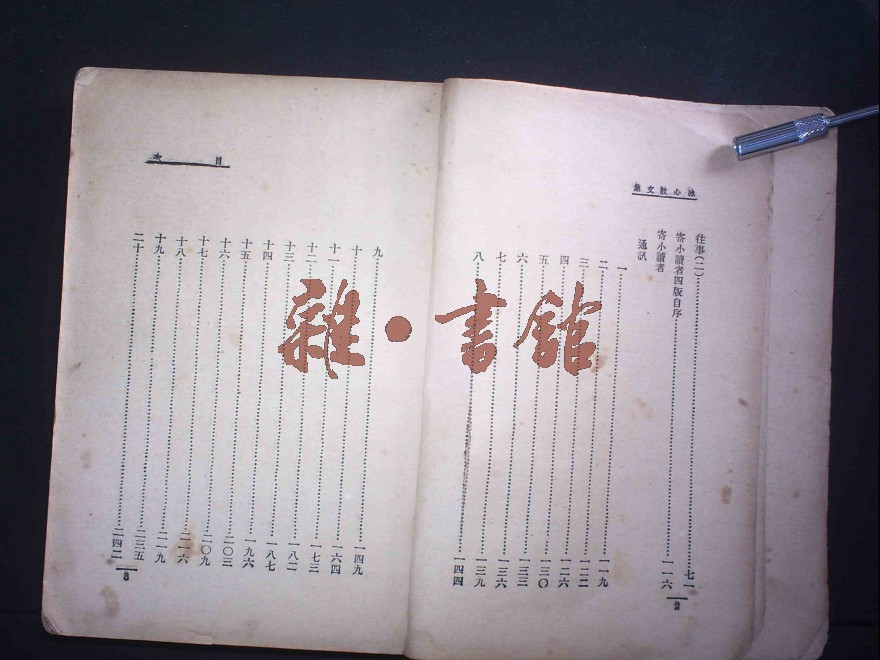 冰心散文集
往事(二)……七一
寄小讀者四版自序……一一六
寄小讀者
通訊
一……一一九
二……一二二
三……一二六
四……一三〇
五……一三三
六……一三六
七……一三九
八……一四四
2
目次
九……一四九
十……一六四
十一……一七三
十二……一八二
十三……一八七
十四……一九六
十五……二〇三
十六……二〇九
十七……二一六
十八……二一九
十九……二三五
二十……二四二
3
雜·書館